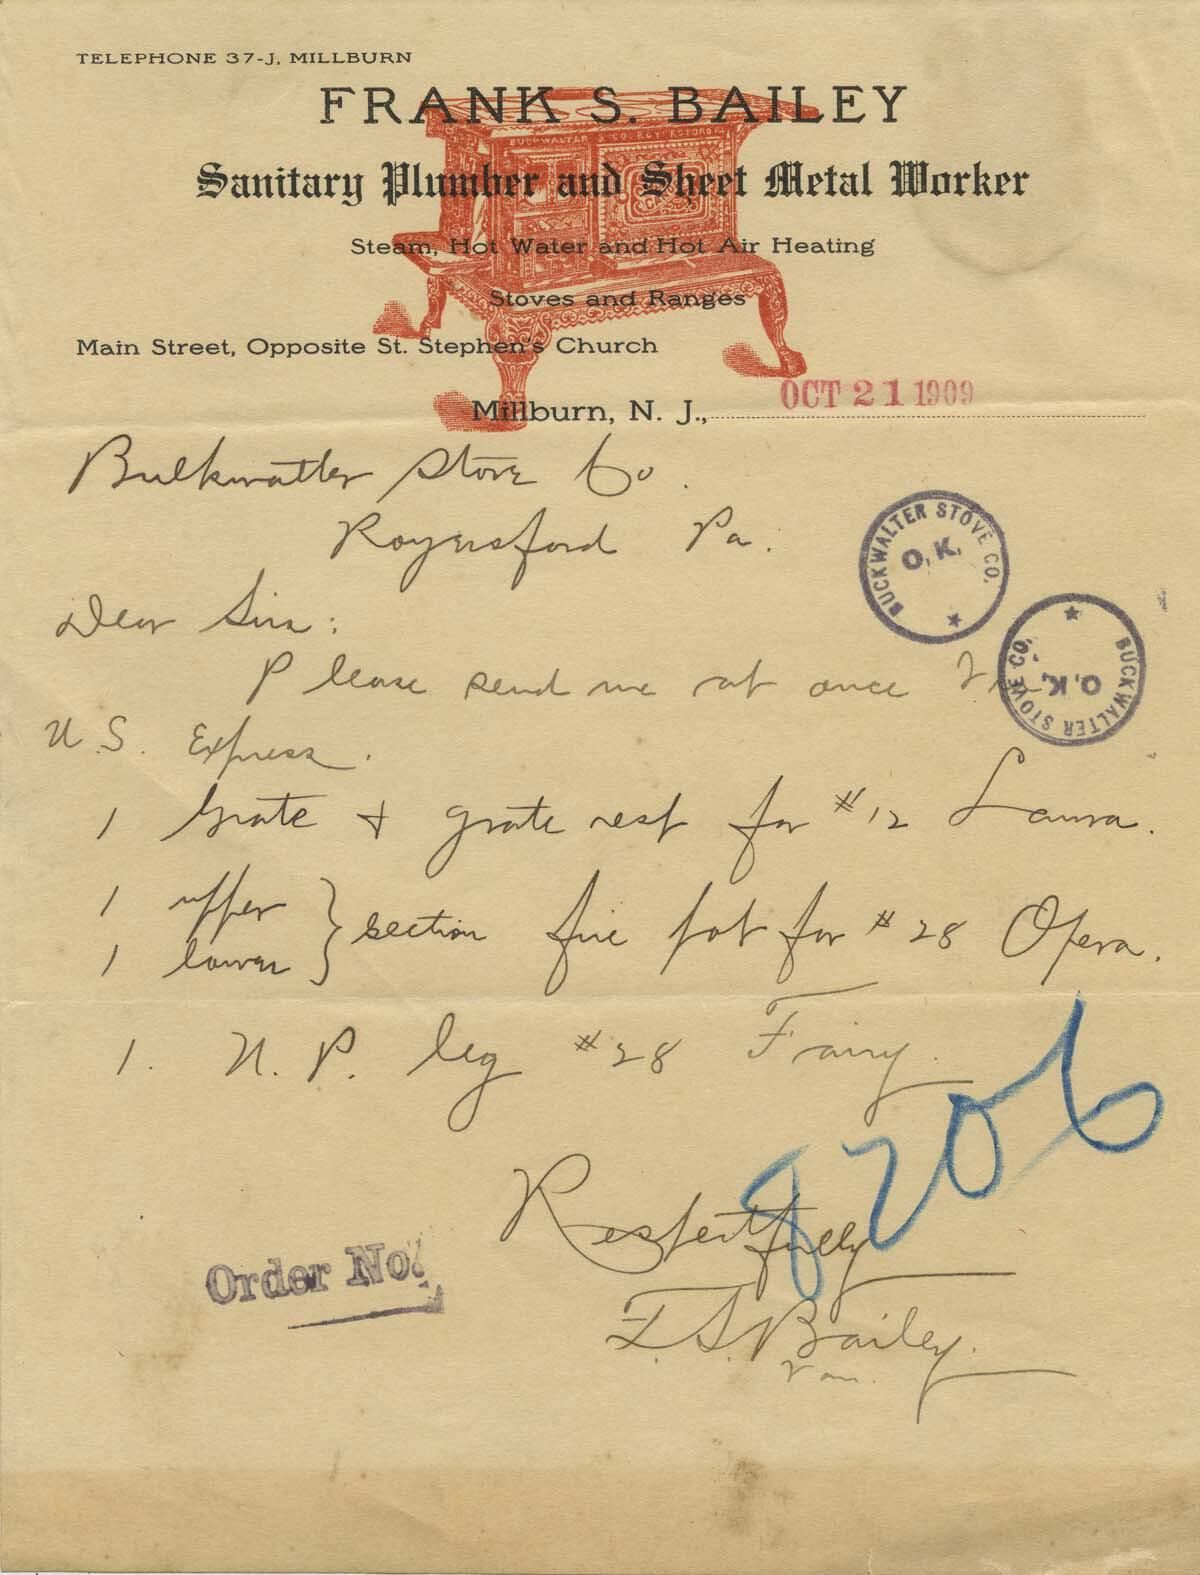 TELEPHONE 37-J, MILLBURN
FRANK S. BAILEY
BUCKWALTER & CO. ROYERSFORD PA
Sanitary Plumber and Sheet Metal Worker
Steam, Hot Water and Hot Air Heating
Stoves and Ranges
Main Street, Opposite St. Stephen's Church
Millburn, N. J., OCT 21 1909
Bulkwatter Stove Co.
Royersford Pa.
BUCKWALTER STOVE CO.
O.K.
Dear Sirs:
BUCKWALTER STOVE CO.
O.K.
Please send me at once
U.S. Express.
1 Grate & grate rest for #12 Laura.
1 upper
1 lower } section fire pot for #28 Opera.
1. N.P. leg #28 Fairy.
8206
Respectfully
Order No.
F. S. Bailey.